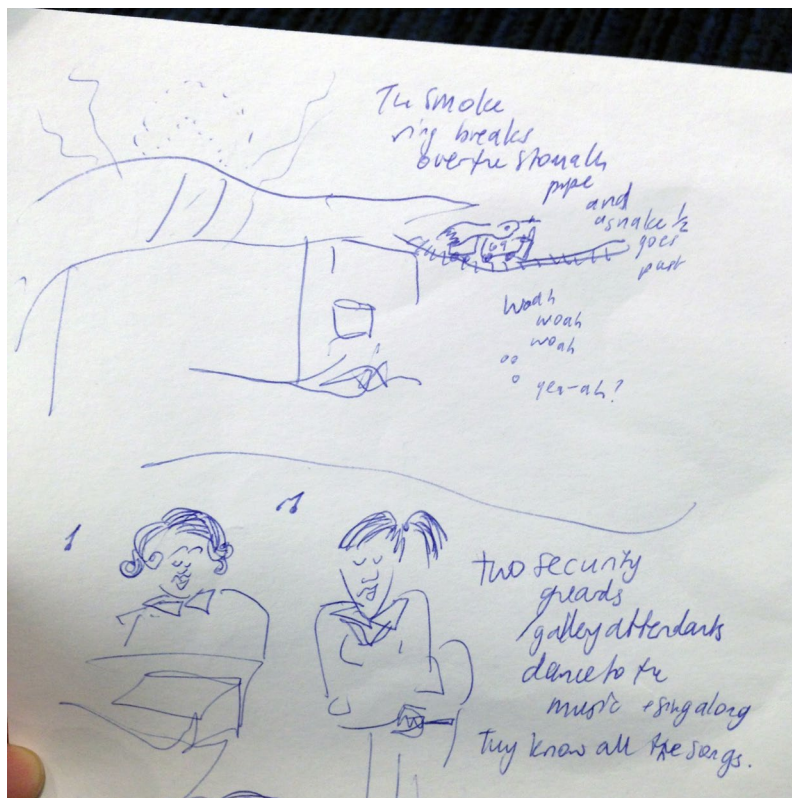 The smoke
ring breaks
over the stomach
pipe
and
a snake 1/2
goes
past
Woah
woah
woah
oo
o yea-ah?
two security
greads
/gallery attendants
dance to the
music + sing along
They know all the songs.